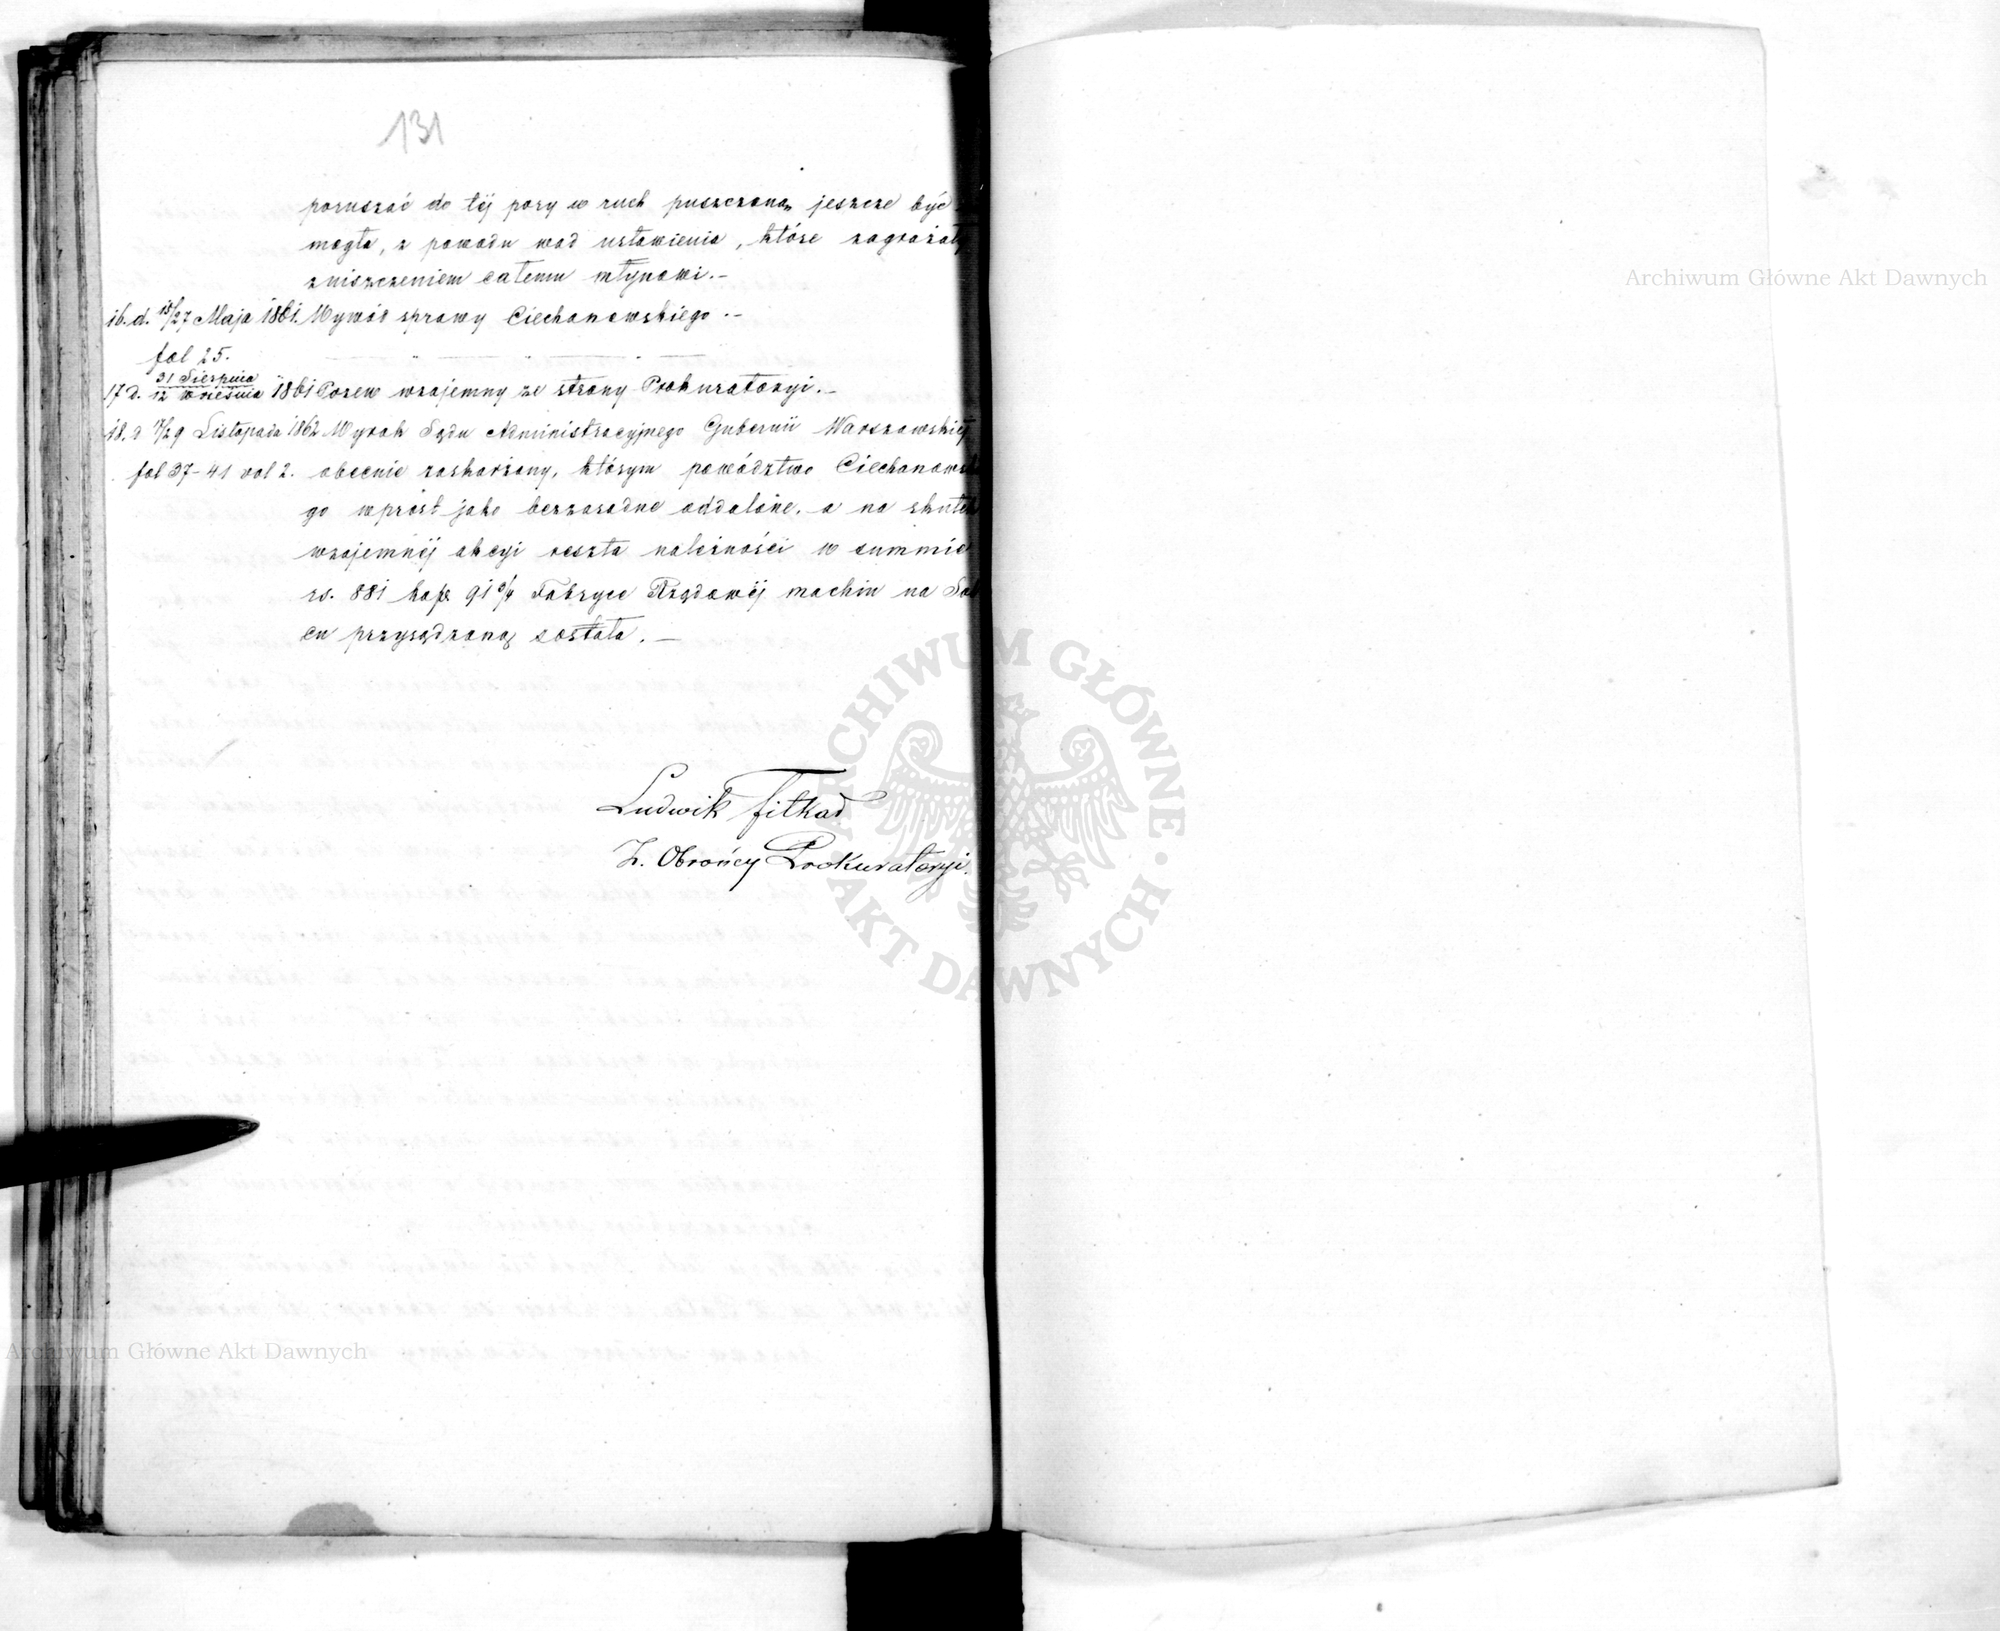 131
poruszać do téj pory w ruch puszczoną jeszcze być
mogła, z powodu wad ustawienia, które zagrażały
zniszczeniem całemu młynowi.–
16. d. 15/27 Maja 1861. Wywód sprawy Ciechanowskiego.–
fol 25.
17 d. 31 Sierpnia / 12 Września 1861 Pozew wzajemny ze strony Prokuratoryi.–
18. d 17/29 Listopada 1862 Wyrok Sądu Administracyjnego Gubernii Warszawskiéj
fol 37–41 vol 2. obecnie zaskarżony, którym powództwo Ciechanowskie
go wprost jako bezzasadne oddalone, a na skutek
wzajemnéj akcyi reszta należności w summie
rs. 881 kop. 91 3/4 Fabryce Rządowéj machin na Sol
cu przysądzoną została.–
Ludwik Fitkał
Z. Obrońcy Prokuratoryi.
Archiwum Główne Akt Dawnych
ARCHIWUM GŁÓWNE AKT DAWNYCH
Archiwum Główne Akt Dawnych